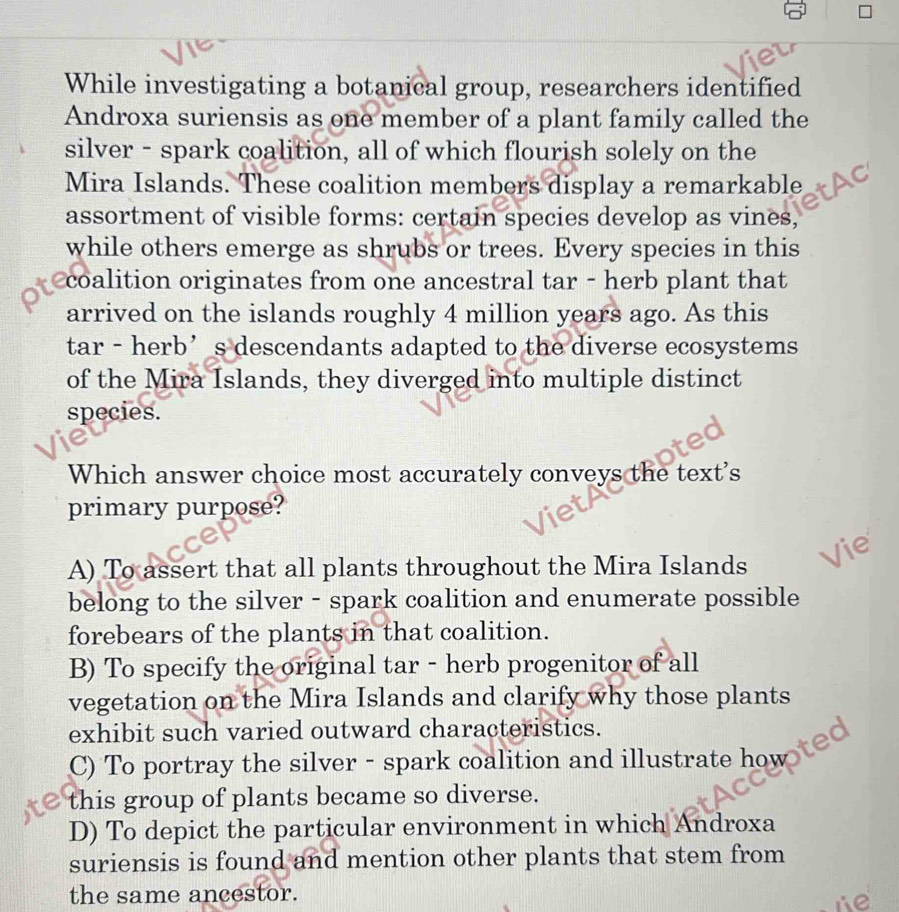 While investigating a botanical group, researchers identified
Androxa suriensis as one member of a plant family called the
silver - spark coalition, all of which flourish solely on the
Mira Islands. These coalition members display a remarkable
assortment of visible forms: certain species develop as vines,
while others emerge as shrubs or trees. Every species in this
coalition originates from one ancestral tar - herb plant that
arrived on the islands roughly 4 million years ago. As this
tar - herb’ s descendants adapted to the diverse ecosystems
of the Mira Islands, they diverged into multiple distinct
species.
Which answer choice most accurately conveys the text’s
primary purpose?
A) To assert that all plants throughout the Mira Islands
belong to the silver - spark coalition and enumerate possible
forebears of the plants in that coalition.
B) To specify the original tar - herb progenitor of all
vegetation on the Mira Islands and clarify why those plants
exhibit such varied outward characteristics.
C) To portray the silver - spark coalition and illustrate how
this group of plants became so diverse.
D) To depict the particular environment in which Androxa
suriensis is found and mention other plants that stem from
the same ancestor.
VietAccepted
VietAccepted
VietAccepted
VietAccepted
VietAccepted
VietAccepted
VietAccepted
VietAccepted
VietAccepted